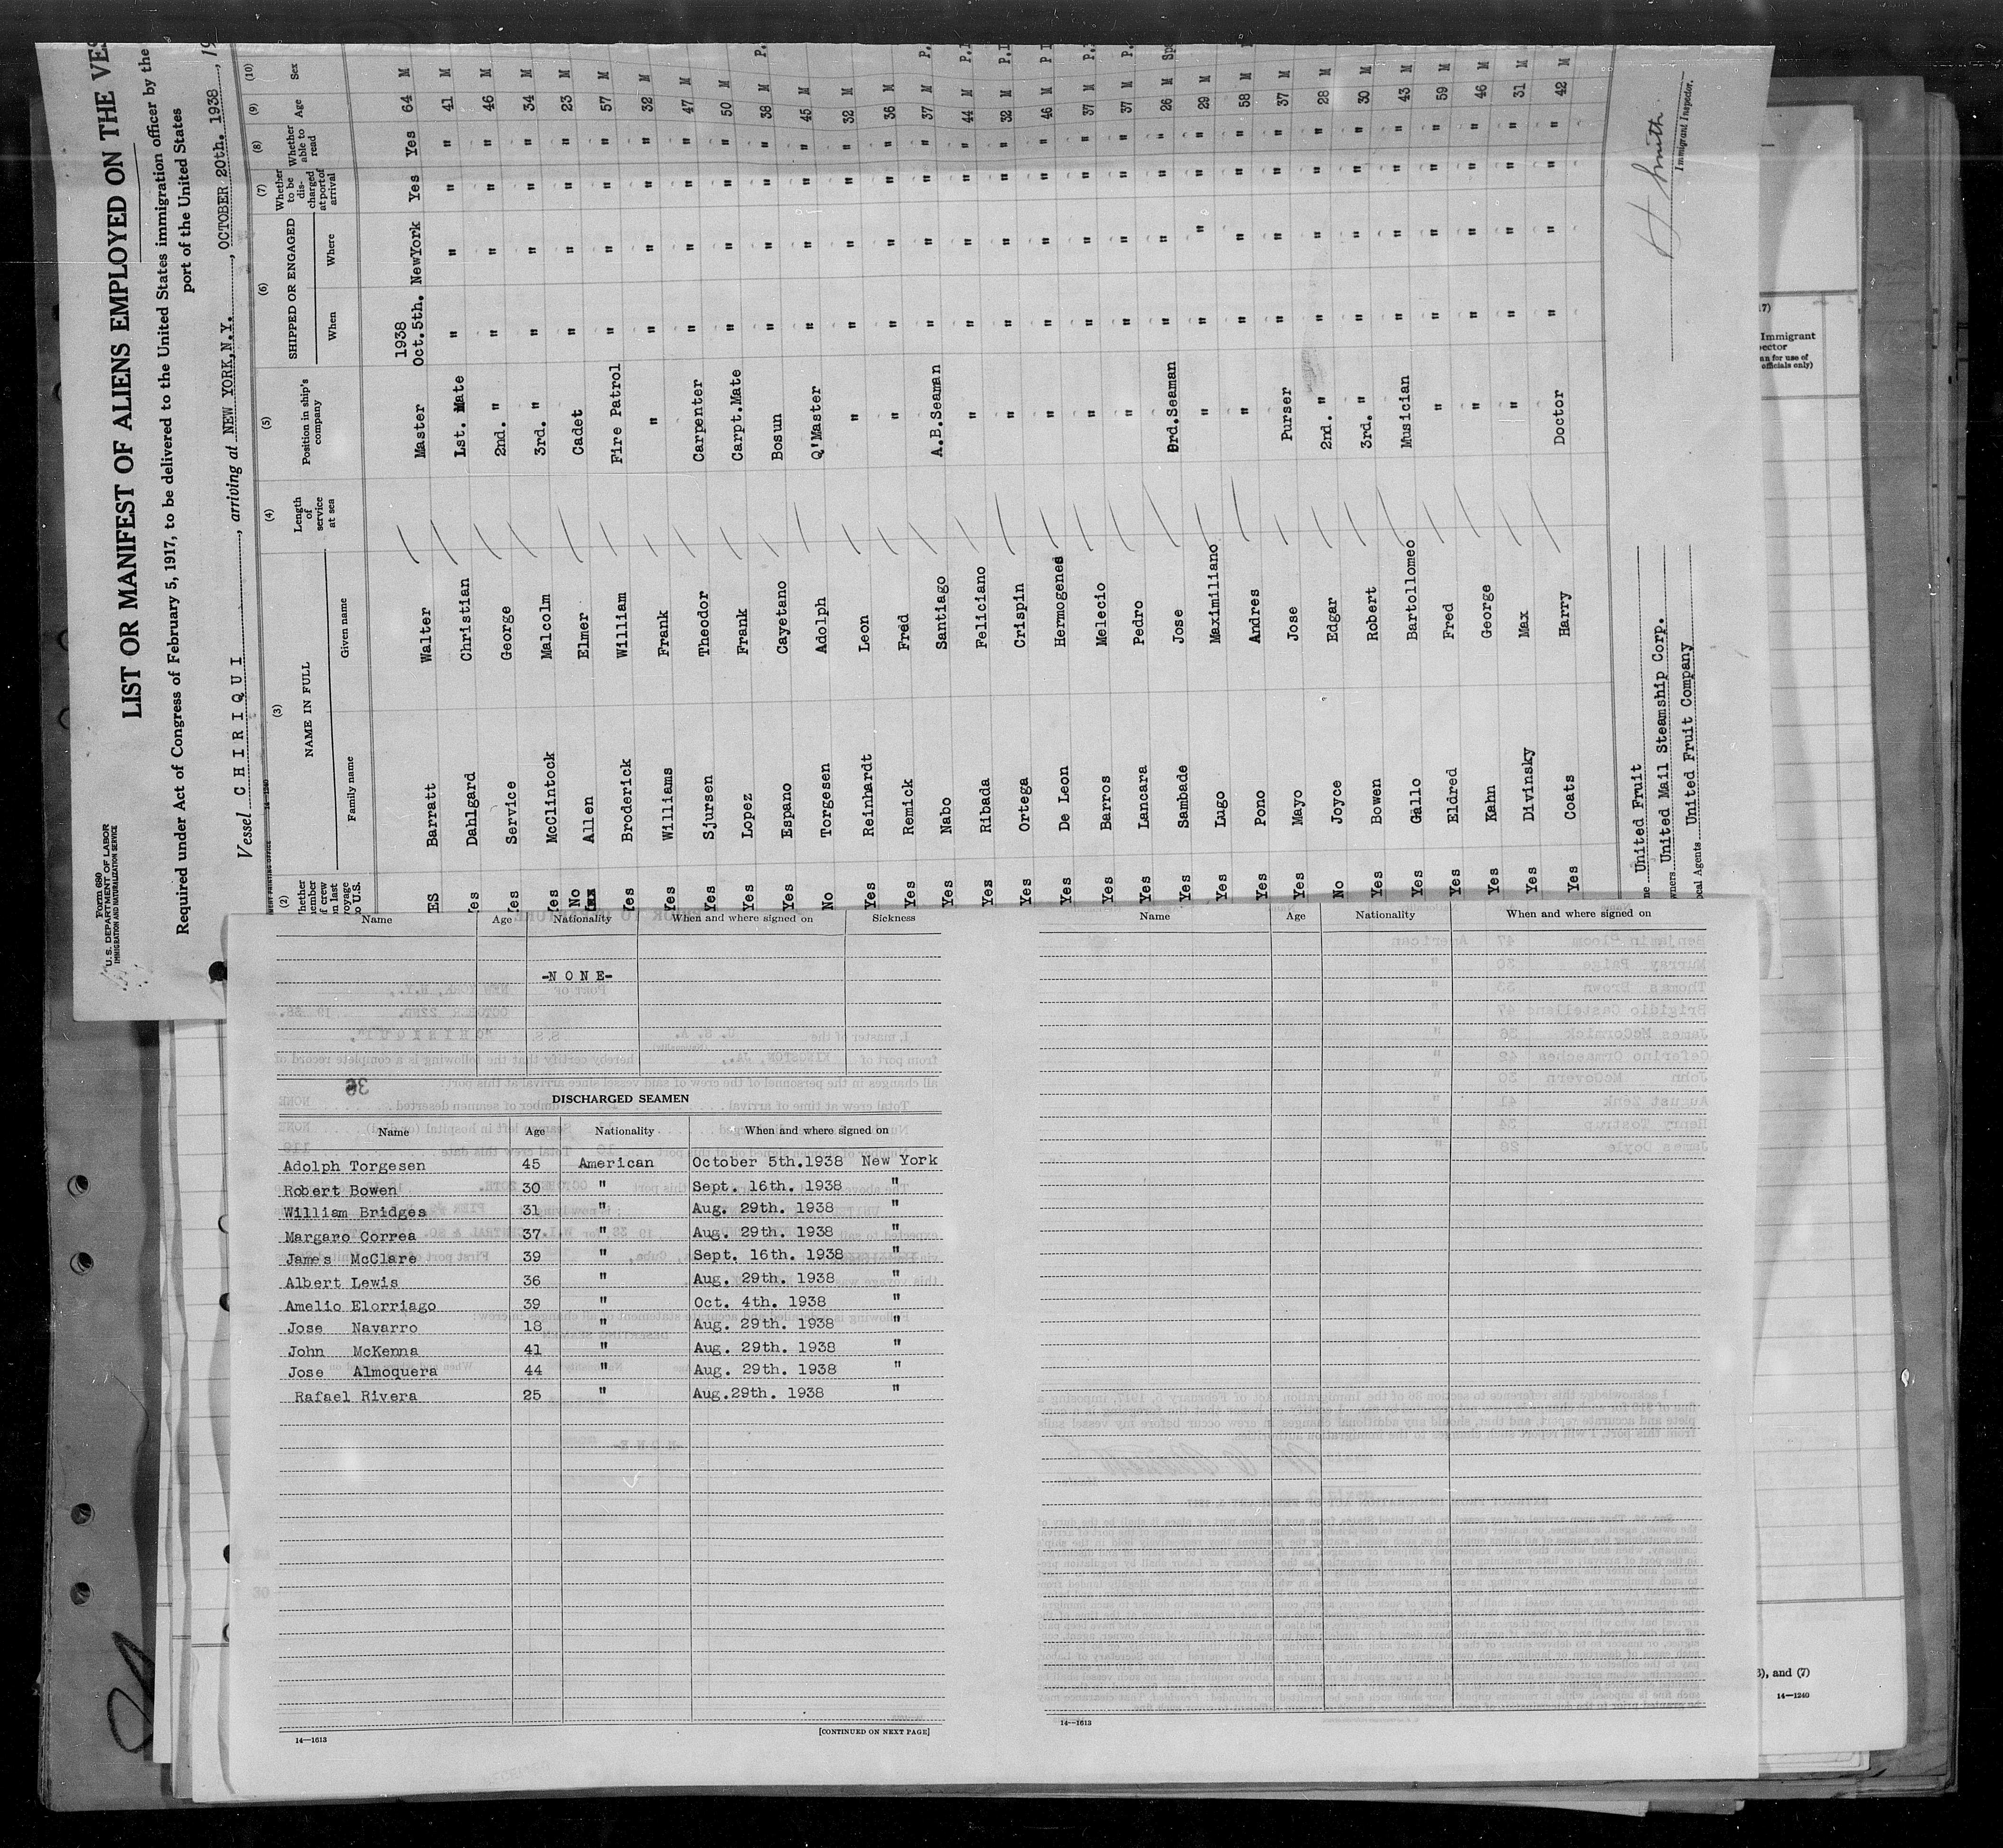 Form 680
U. S. DEPARTMENT OF LABOR
IMMIGRATION AND NATURALIZATION SERVICE
LIST OR MANIFEST OF ALIENS EMPLOYED ON THE
Required under Act of Congress of February 5, 1917, to be delivered to the United States immigration officer by the
port of the United States
Vessel C H I R I Q U I, arriving at NEW YORK, N.Y., OCTOBER 20th. 1938
(2) (3) (4) (5) (6) (7) (8) (9) (10)
NAME IN FULL Length of service at sea Position in ship's company SHIPPED OR ENGAGED Whether to be discharged at port of arrival Whether able to read Age Sex
Family name Given name When Where
1938
Barratt Walter Master Oct.5th. NewYork Yes Yes 64 M
Yes Dahlgard Christian Lst. Mate " " " " 41 M
Yes Service George 2nd. " " " " " 46 M
Yes McClintock Malcolm 3rd. " " " " " 34 M
No Allen Elmer Cadet " " " " 23 M
Yes Broderick William Fire Patrol " " " " 57 M
Yes Williams Frank " " " " " 32 M
Yes Sjursen Theodor Carpenter " " " " 47 M
Yes Lopez Frank Carpt.Mate " " " " 50 M
Yes Espano Cayetano Bosun " " " " 38 M P.
No Torgesen Adolph Q'Master " " " " 45 M
Yes Reinhardt Leon " " " " " 32 M
Yes Remick Fred " " " " " 36 M
Yes Nabo Santiago A.B.Seaman " " " " 37 M P.
Yes Ribada Feliciano " " " " " 44 M P.I
Yes Ortega Crispin " " " " " 32 M P.I
Yes De Leon Hermogenes " " " " " 46 M P.I
Yes Barros Melecio " " " " " 37 M P.
Yes Lancara Pedro " " " " " 37 M P.
Yes Sambade Jose Ord.Seaman " " " " 26 M Sp
Yes Lugo Maximiliano " " " " " 29 M
Yes Pono Andres " " " " " 58 M
Yes Mayo Jose Purser " " " " 37 M
No Joyce Edgar 2nd. " " " " " 28 M
Yes Bowen Robert 3rd. " " " " " 30 M
Yes Gallo Bartollomeo Musician " " " " 43 M
Yes Eldred Fred " " " " " 59 M
Yes Kahn George " " " " " 46 M
Yes Divinsky Max " " " " " 31 M
Yes Coats Harry Doctor " " " " 42 M
United Fruit
United Mail Steamship Corp.
Local Agents United Fruit Company
H Smith
Immigrant Inspector.
Immigrant
14—1240
Name Age Nationality When and where signed on Sickness
-N O N E-
DISCHARGED SEAMEN
Name Age Nationality When and where signed on
Adolph Torgesen 45 American October 5th.1938 New York
Robert Bowen 30 " Sept. 16th. 1938 "
William Bridges 31 " Aug. 29th. 1938 "
Margaro Correa 37 " Aug. 29th. 1938 "
James McClare 39 " Sept. 16th. 1938 "
Albert Lewis 36 " Aug. 29th. 1938 "
Amelio Elorriago 39 " Oct. 4th. 1938 "
Jose Navarro 18 " Aug. 29th. 1938 "
John McKenna 41 " Aug. 29th. 1938 "
Jose Almoquera 44 " Aug. 29th. 1938 "
Rafael Rivera 25 " Aug.29th. 1938 "
14—1613
[CONTINUED ON NEXT PAGE]
Name Age Nationality When and where signed on
14—1613